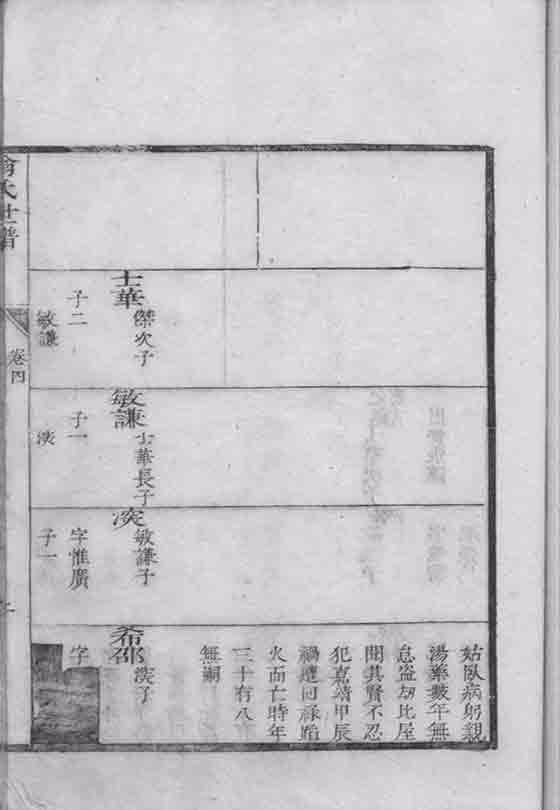 士華 傑次子
子二
敏謙
敏謙 士華長子
子一
敏謙子
字惟廣
子一
姑臥病躬親
湯藥數年無
怠盜刼比屋
聞其賢不忍
犯嘉靖甲辰
禍遭回祿蹈
火而亡時年
三十有八
無嗣
希邵 子
字
氏世譜
卷四